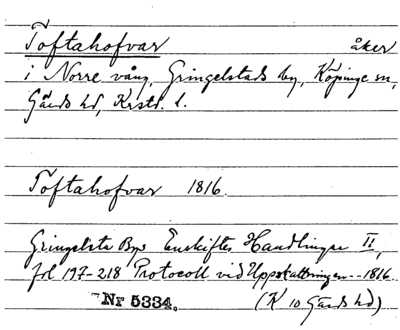 Toftahofvar åker
i Norre vång, Gringelstads by, Köpinge sn,
Gärds hd, Krstd. l.
Toftahofvar 1816.
Gringelsta Bys Enskiftes Handlingar II,
fol 197-218 Protocoll vid Uppskattningen -- 1816
Nr 5334. (K 10 Gärds hd)